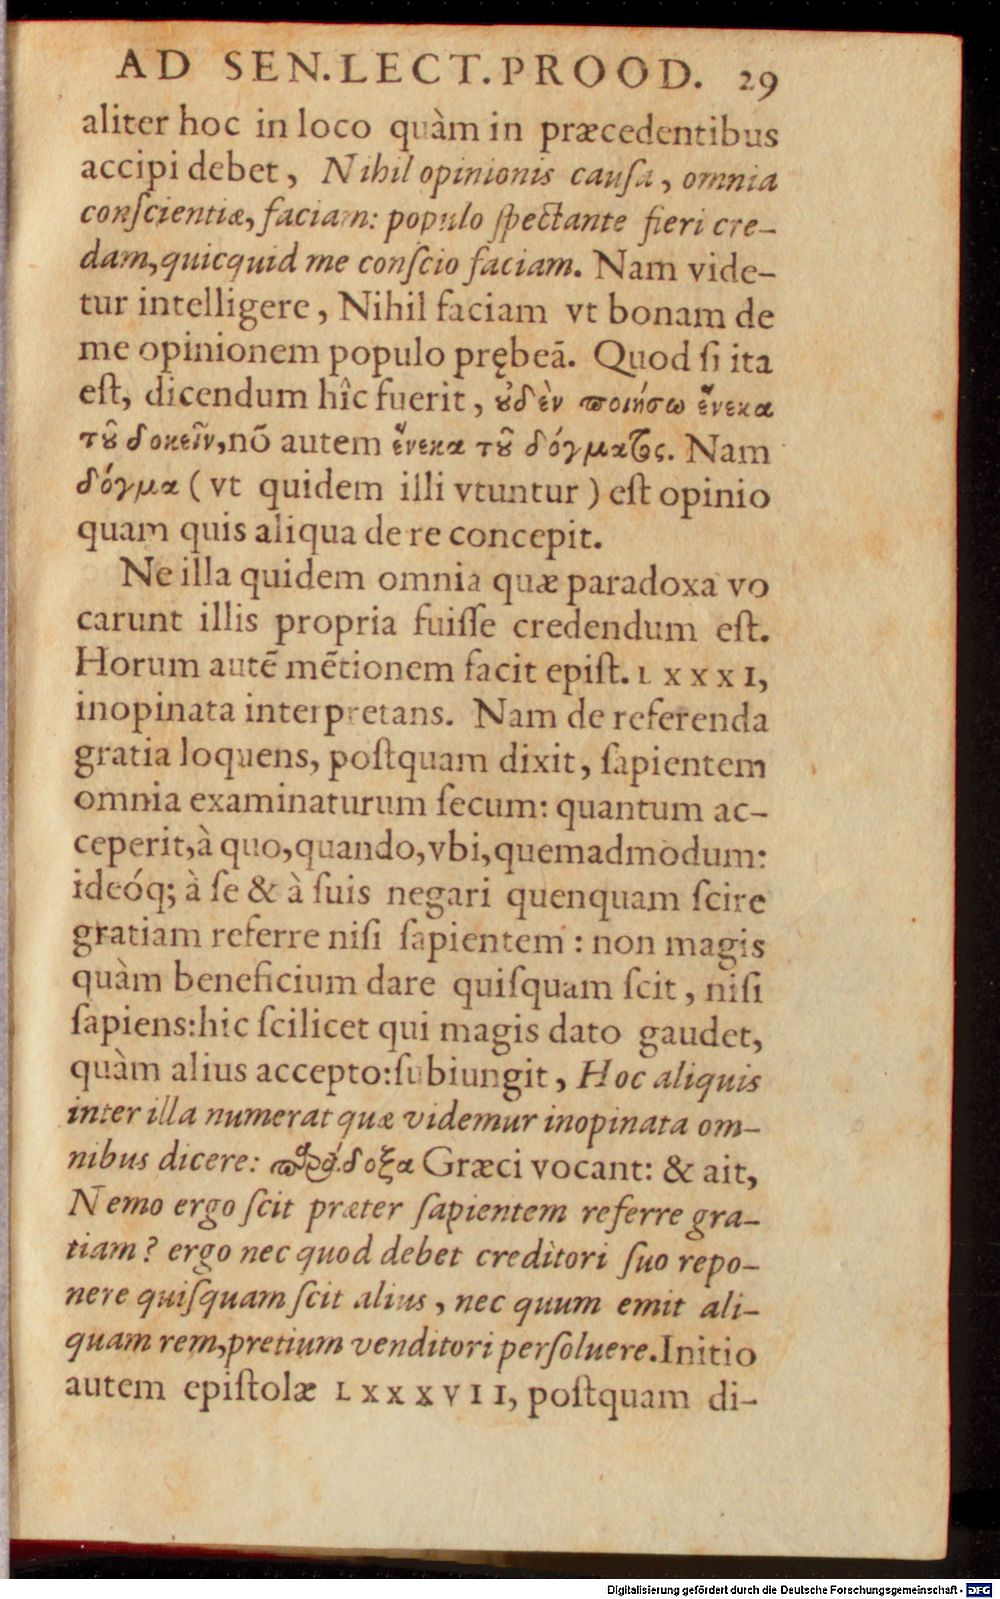 AD SEN.LECT.PROOD. 29
aliter hoc in loco quàm in præcedentibus
accipi debet, Nihil opinionis cauſa, omnia
conſcientiæ, faciam: populo ſpectante fieri cre-
dam, quicquid me conſcio faciam. Nam vide-
tur intelligere, Nihil faciam vt bonam de
me opinionem populo prębeã. Quod ſi ita
eſt, dicendum hîc fuerit, ȣ̓δὲν ποιήσω ἕνεκα
τȣ͂ δοκεῖν, nõ autem ἕνεκα τȣ͂ δόγματος. Nam
δόγμα (vt quidem illi vtuntur) eſt opinio
quam quis aliqua de re concepit.
Ne illa quidem omnia quæ paradoxa vo
carunt illis propria fuiſſe credendum eſt.
Horum autẽ mẽtionem facit epiſt. LXXXI,
inopinata interpretans. Nam de referenda
gratia loquens, poſtquam dixit, ſapientem
omnia examinaturum ſecum: quantum ac-
ceperit, à quo, quando, vbi, quemadmodum:
ideóq; à ſe & à ſuis negari quenquam ſcire
gratiam referre niſi ſapientem: non magis
quàm beneficium dare quiſquam ſcit, niſi
ſapiens: hic ſcilicet qui magis dato gaudet,
quàm alius accepto: ſubiungit, Hoc aliquis
inter illa numerat quæ videmur inopinata om-
nibus dicere: παράδοξα Græci vocant: & ait,
Nemo ergo ſcit præter ſapientem referre gra-
tiam? ergo nec quod debet creditori ſuo repo-
nere quiſquam ſcit alius, nec quum emit ali-
quam rem, pretium venditori perſoluere. Initio
autem epiſtolæ LXXXVII, poſtquam di-
Digitalisierung gefördert durch die Deutsche Forschungsgemeinschaft - DFG